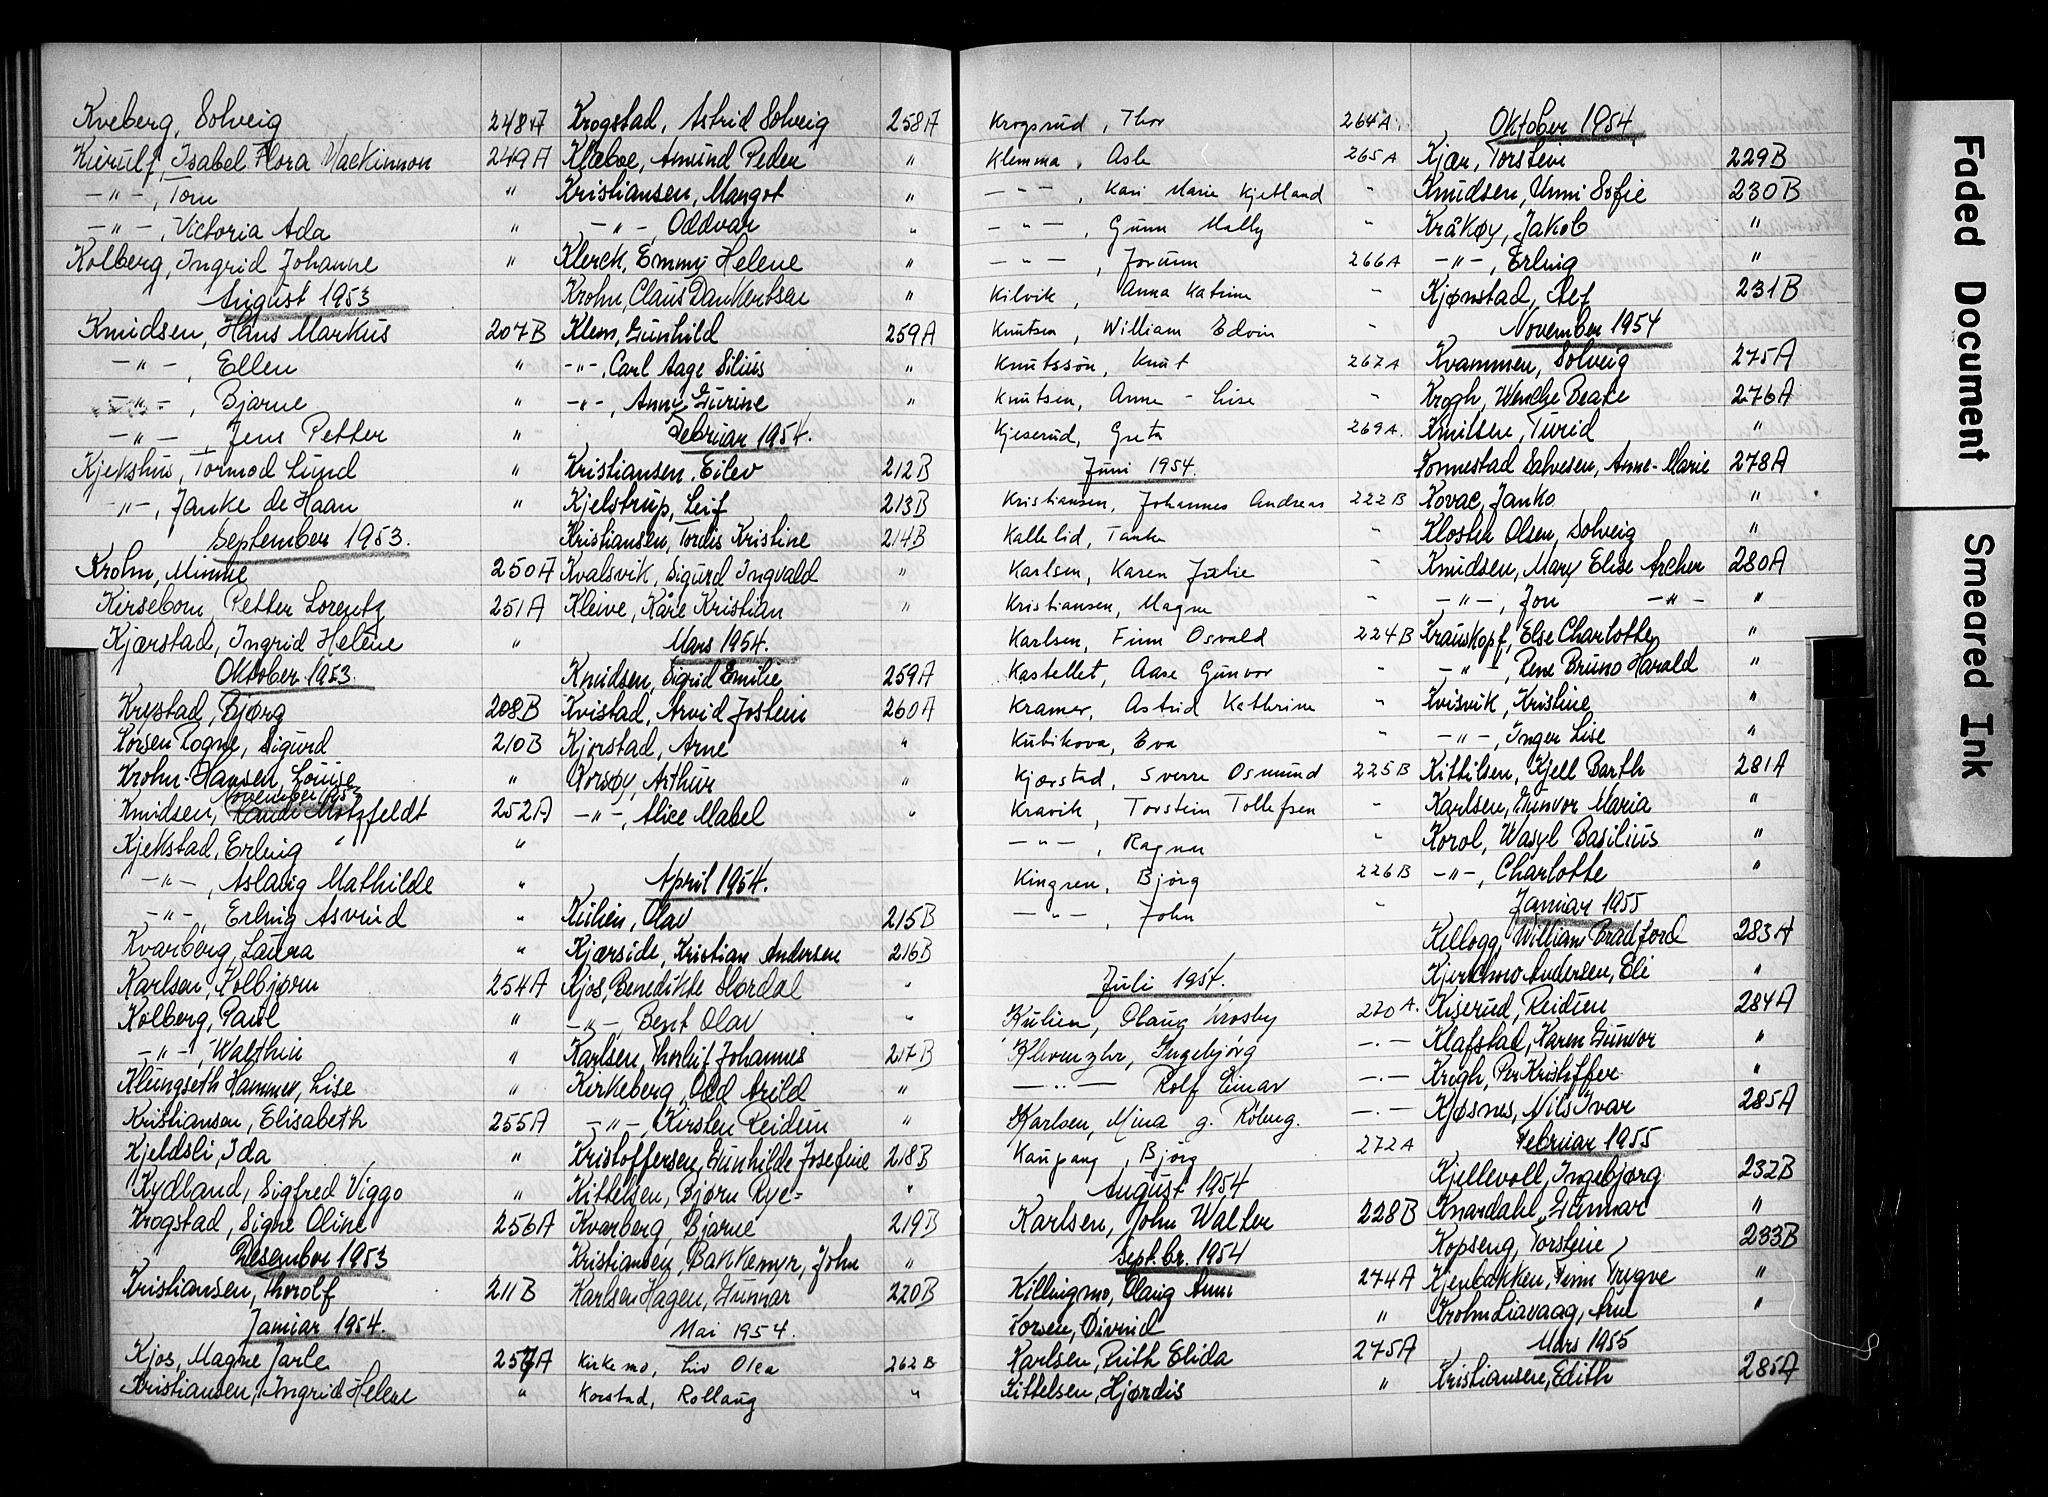 Kveberg, Solveig 248A
Kurulf, Isabel Flora Mackinnon 249A
-"-, Tom "
-"-, Victoria Ada "
Kolberg, Ingrid Johanne "
August 1953
Knudsen, Hans Markus 207B
-"-, Ellen "
-"-, Bjarne "
-"-, Jens Petter "
Kjekshus, Tormod Lund "
-"-, Janke de Haan "
September 1953.
Krohn, Minne 250A
Kirsebom, Petter Lorentz 251A
Kjærstad, Ingrid Helene "
Oktober 1953.
Krystad, Bjørg 208B
Rogne, Sigurd 210B
Krohn-Hansen, Louise "
November 1953
Knudsen, Randi Motzfeldt 252A
Kjekstad, Erling "
-"-, Aslaug Mathilde "
-"-, Erling Asvind "
Kvarberg, Laura "
Karlsen, Kolbjørn 254A
Kolberg, Paul "
-"-, Walthin "
Klungseth Hammer, Lise "
Kristiansen, Elisabeth 255A
Kjeldsli, Ida "
Kydland, Sigfred Viggo "
Krogstad, Signe Oline 256A
Desember 1953
Kristiansen, Thorolf 211B
Januar 1954.
Kjos, Magne Jarle 257A
Kristiansen, Ingrid Helene "
Krogstad, Astrid Solveig 258A
Klæboe, Amund Peder "
Kristiansen, Margot "
-"-, Oddvar "
Klerck, Emmy Helene "
Krohn, Claus Dankertsen "
Klem, Gunhild 259A
-"-, Carl Aage Silius "
-"-, Anny Gurine "
Februar 1954.
Kristiansen, Eilev 212B
Kjelstrup, Leif 213B
Kristiansen, Tordis Kristine 214B
Kvalsvik, Sigurd Ingvald "
Kleive, Kåre Kristian "
Mars 1954.
Knudsen, Sigrid Emilie 259A
Kvistad, Arvid Jostein 260A
Kjorstad, Arne "
Korsøy, Arthur "
-"-, Alice Mabel "
April 1954.
Kulien, Olav 215B
Kjærside, Kristian Andersen 216B
Kjos, Benedikte Hordal "
-"-, Bent Olav "
Karlsen, Thorleif Johannes 217B
Kirkeberg, Odd Arild "
-"-, Kirsten Reidun "
Kristoffersen, Gunhilde Josefine 218B
Kittelsen, Bjørn Rye- "
Kvarberg, Bjarne 219B
Kristiansen, Bakkemyr, John "
Karlsen Hagen, Gunnar 220B
Mai 1954.
Kirkemo, Liv Olea 262B
Korstad, Rollaug "
Krogsrud, Thor 264A
Klemma, Asle 265A
-"-, Kari Marie Kjetland "
-"-, Gunn Mally "
-"-, Jorunn 266A
Kilvik, Anna Katrine "
Knutsen, William Edvin "
Knutsson, Knut 267A
Knutsen, Anne-Lise "
Kjeserud, Greta 269A.
Juni 1954.
Kristiansen, Johannes Andreas 222B
Kallelid, "
Karlsen, Karen Julie "
Kristiansen, Magne
Karlsen, Finn Osvald 224B
Kastellet, Aase Gunvor "
Kramer, Astrid Kathrine "
Kubikova, Eva "
Kjærstad, Sverre Osmund 225B
Kravik, Torstein Tollefsen "
-"-, Ragna "
Kingren, Bjørg 226B
-"-, John "
Juli 1954.
Kulien, Olaug Krosby 270A.
Klevengher, Ingebjørg -"-
-"- Rolf Einar -"-
Karlsen, Mina g. Röberg. -"-
Kaupang, Bjørg 272A
August 1954
Karlsen, John Walter 228B
Septbr. 1954
Killingmo, Olaug Anni 274A
Korsen, Øivind "
Karlsen, Ruth Elida 275A
Kittelsen, Hjørdis "
Oktober 1954
Kjær, Torstein 229B
Knudsen, Unni Sofie 230B
Kråkøy, Jakob "
-"-, Erling "
Kjønstad, Alf 231B
November 1954
Kvammen, Solveig 275A
Krogh, Wenche Beate 276A
Knutsen, Turid "
Kornestad Salvesen, Anne-Marie 278A
Kovac, Janko "
Kloster Olsen, Solveig "
Knudsen, Mary Elise Archer 280A
-"-, Jon -"- "
Krauskopf, Else Charlotte "
-"-, Rene Bruno Harald "
Kvisvik, Kristine "
-"-, Inger Lise "
Kittilsen, Kjell Barth 281A
Karlsen, Gunvor Maria "
Korol, Wasyl Basilius "
-"-, Charlotte "
Januar 1955
Kellogg, William Bradford 283A
Kjerchow Andersen, Eli "
Kiserud, Reidun 284A
Klafstad, Karen Gunvor "
Krogh, Per Kristoffer "
Kjøsnes, Nils Ivar 285A
Februar 1955
Kjellevoll, Ingebjørg 232B
Knardahl, Gunnar "
Kopseng, Torstein 233B
Kjenbakken, Finn Trygve "
Krohn Liavaag, Arne "
Mars 1955
Kristiansen, Edith 285A
Faded Document
Smeared Ink